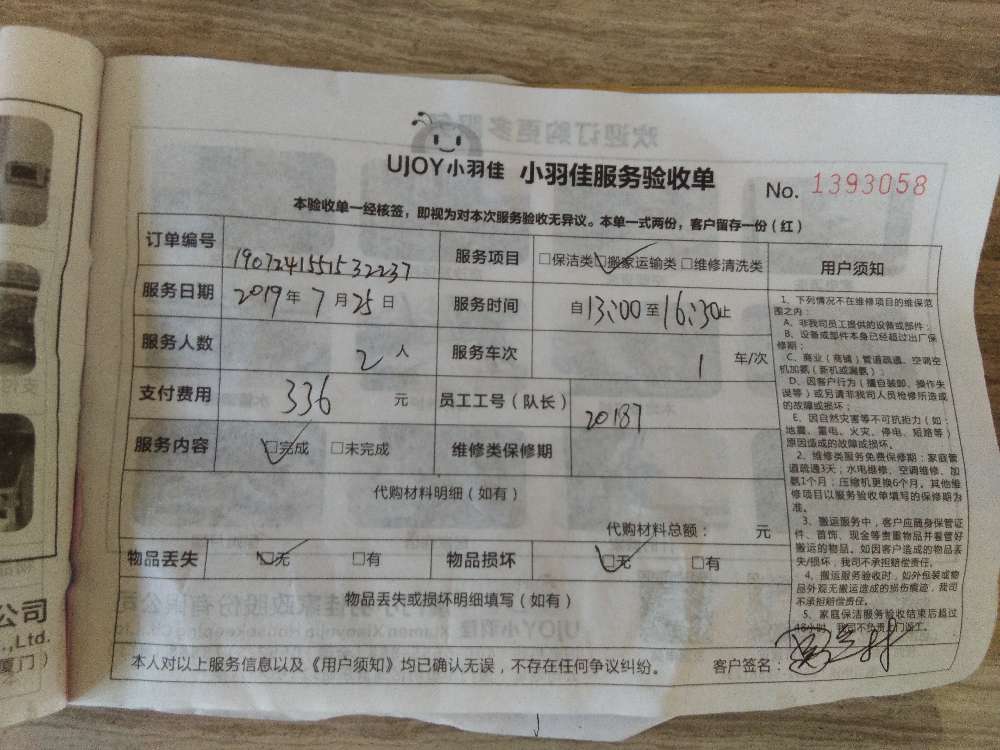 欢迎订购更多服务
UJOY小羽佳 小羽佳服务验收单 No. 1393058
本验收单一经核签，即视为对本次服务验收无异议。本单一式两份，客户留存一份（红）
订单编号 1907241551532237 服务项目 □保洁类☑搬家运输类□维修清洗类 用户须知
服务日期 2019年7月25日 服务时间 自13:00至16:30止
服务人数 2人 服务车次 1 车/次
支付费用 336 元 员工工号（队长） 20187
服务内容 ☑完成 □未完成 维修类保修期
代购材料明细（如有）
代购材料总额： 元
物品丢失 ☑无 □有 物品损坏 ☑无 □有
物品丢失或损坏明细填写（如有）
本人对以上服务信息以及《用户须知》均已确认无误，不存在任何争议纠纷。 客户签名：
1、下列情况不在维修项目的维保范
围之内：
A、非我司员工提供的设备或部件；
B、设备或部件本身已经超过出厂保
修期；
C、商业（商铺）管道疏通、空调空
机加氨（新机或漏氨）；
D、因客户行为（擅自装卸、操作失
误等）或另请非我司人员检修所造成
的故障或损坏；
E、因自然灾害等不可抗拒力（如：
地震、雷电、火灾、停电、短路等）
原因造成的故障或损坏。
2、维修类服务免费保修期：家庭管
道疏通3天；水电维修、空调维修、加
氨1个月；压缩机更换6个月。其他维
修项目以服务验收单填写的保修期为
准。
3、搬运服务中，客户应随身保管证
件、首饰、现金等贵重物品并看管好
搬运的物品。如因客户造成的物品丢
失/损坏，我司不承担赔偿责任。
4、搬运服务验收时，如外包装或物
品外观无搬运造成的损伤痕迹，我司
不承担赔偿责任。
5、家庭保洁服务验收结束后超过
48小时，我司不负责上门返工。
公司
.,Ltd.
厦门）